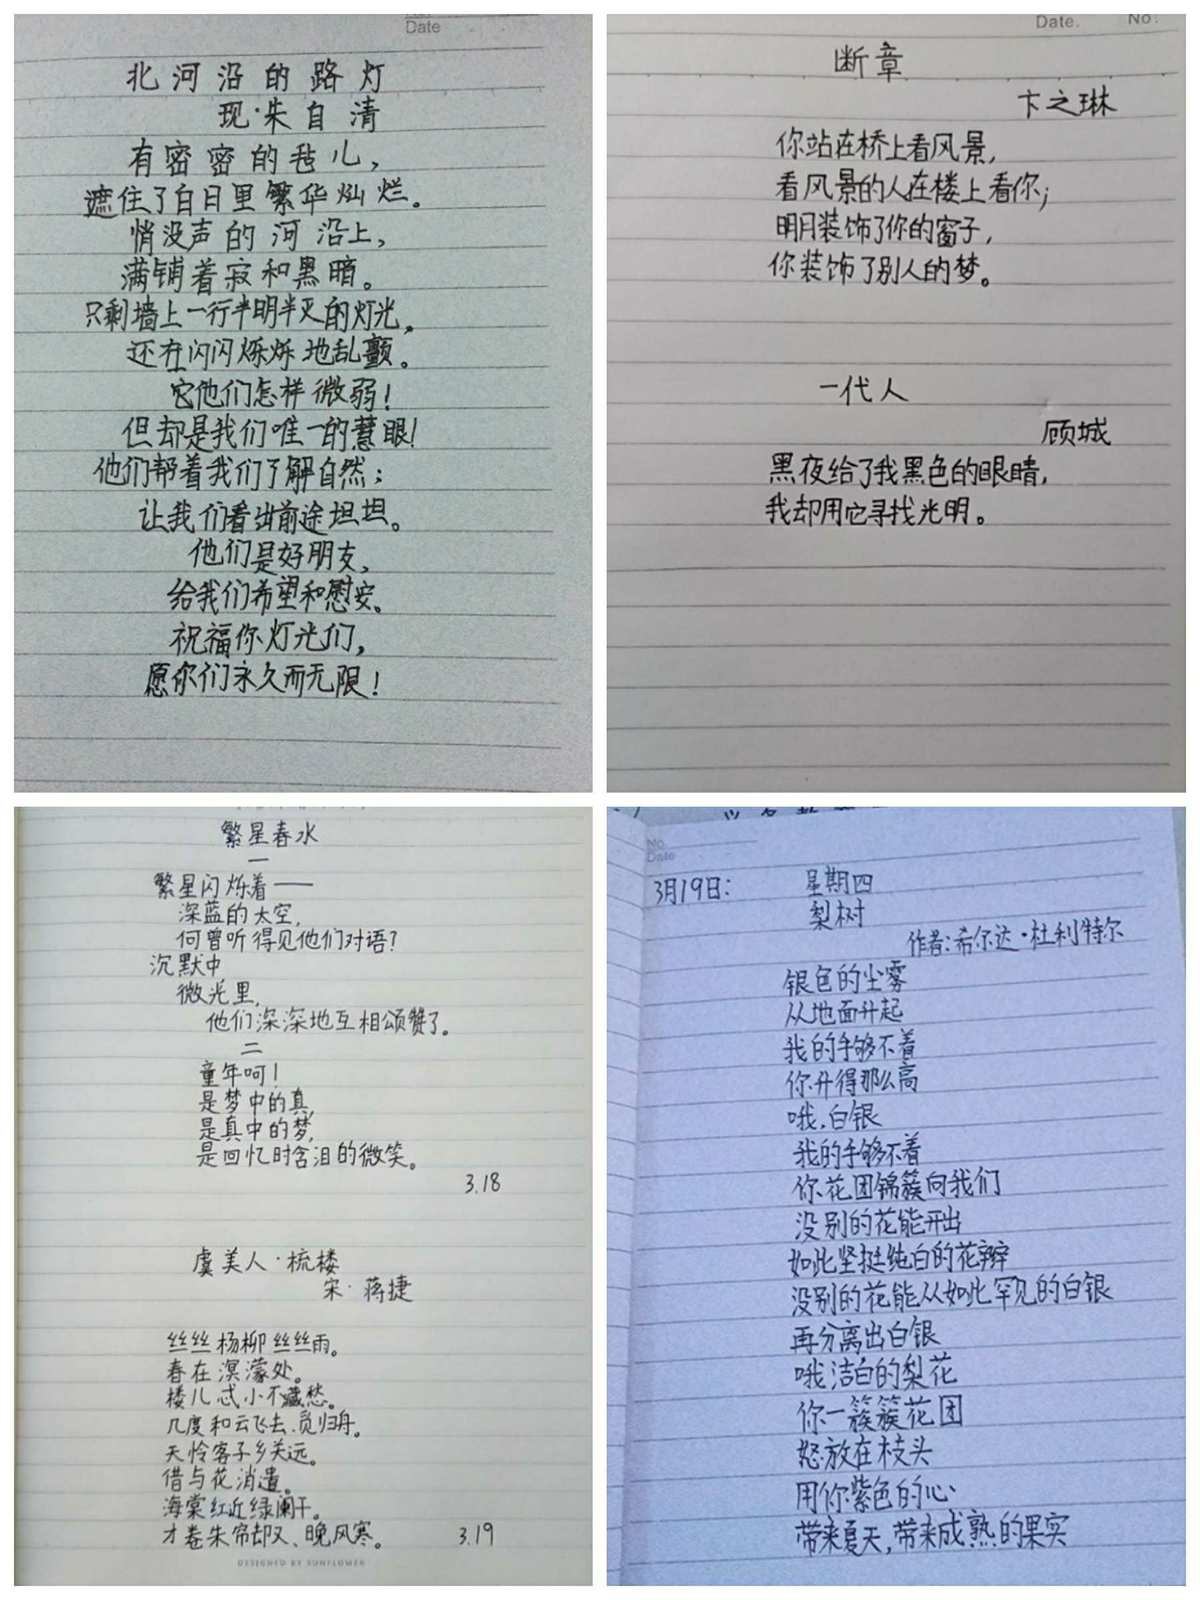 Date
北河沿的路灯
现·朱自清
有密密的毡儿，
遮住了白日里繁华灿烂。
悄没声的河沿上，
满铺着寂和黑暗。
只剩墙上一行半明半灭的灯光，
还在闪闪烁烁地乱颤。
它他们怎样微弱！
但却是我们唯一的慧眼！
他们帮着我们了解自然；
让我们看出前途坦坦。
他们是好朋友，
给我们希望和慰安。
祝福你灯光们，
愿你们永久而无限！
Date. No:
断章
卞之琳
你站在桥上看风景，
看风景的人在楼上看你；
明月装饰了你的窗子，
你装饰了别人的梦。
一代人
顾城
黑夜给了我黑色的眼睛，
我却用它寻找光明。
繁星春水
一
繁星闪烁着——
深蓝的太空，
何曾听得见他们对语？
沉默中
微光里，
他们深深地互相颂赞了。
二
童年呵！
是梦中的真，
是真中的梦，
是回忆时含泪的微笑。
3.18
虞美人·梳楼
宋·蒋捷
丝丝杨柳丝丝雨。
春在溟濛处。
楼儿忒小不藏愁。
几度和云飞去、觅归舟。
天怜客子乡关远。
借与花消遣。
海棠红近绿阑干。
才卷朱帘却又、晚风寒。
3.19
DESIGNED BY SUNFLOWER
No
Date
3月19日： 星期四
梨树
作者：希尔达·杜利特尔
银色的尘雾
从地面升起
我的手够不着
你升得那么高
哦，白银
我的手够不着
你花团锦簇向我们
没别的花能开出
如此坚挺纯白的花瓣
没别的花能从如此罕见的白银
再分离出白银
哦洁白的梨花
你一簇簇花团
怒放在枝头
用你紫色的心
带来夏天，带来成熟的果实